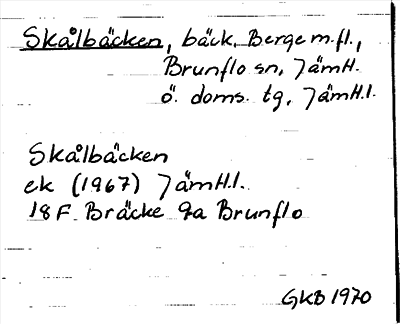 Skålbäcken, bäck, Berge m.fl.,
Brunflo sn, Jämtl.
ö. doms. tg, Jämtl.l.
Skålbäcken
ek (1967) Jämtl.l.
18F Bräcke 9a Brunflo
GKB 1970